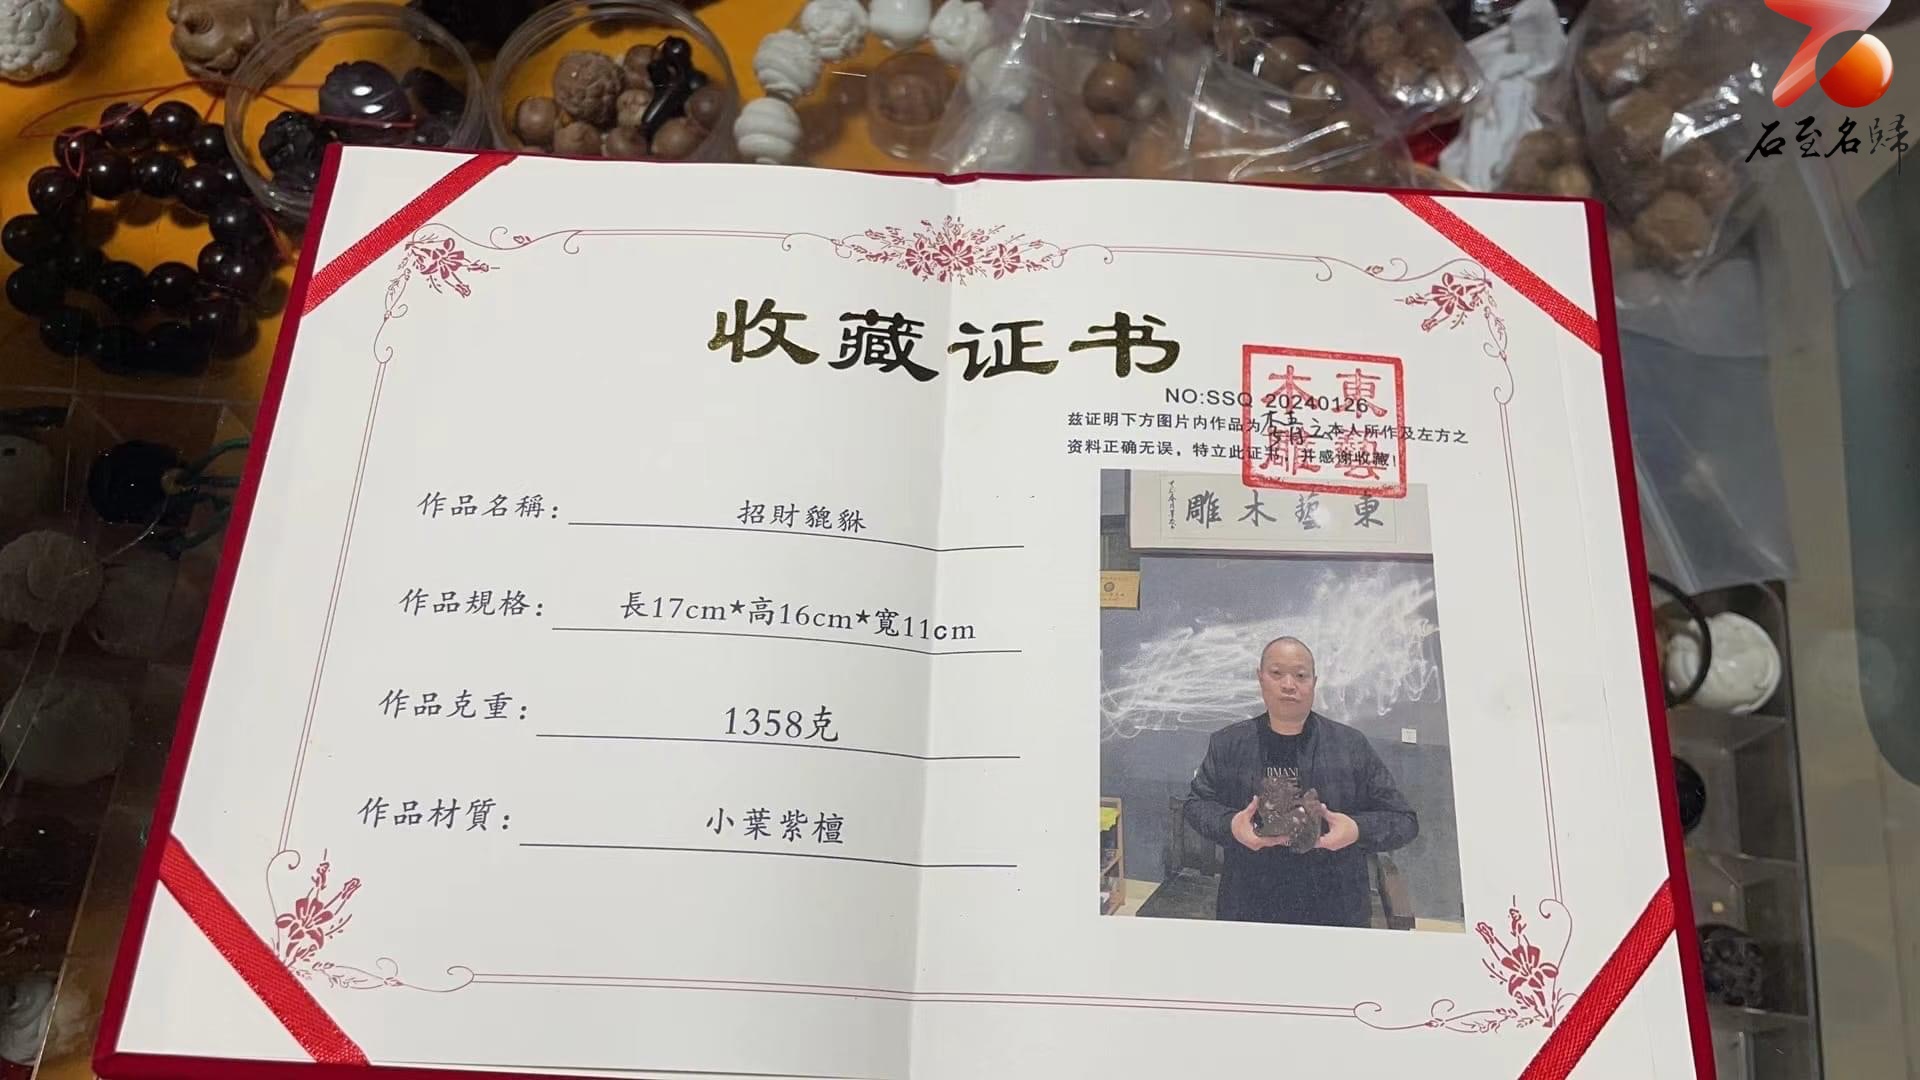 石至名歸
收藏证书
NO:SSQ 20240126
兹证明下方图片内作品为 之本人所作及左方之
资料正确无误，特立此证书，并感谢收藏!
東藝
木雕
作品名稱： 招財貔貅
作品規格： 長17cm*高16cm*寬11cm
作品克重： 1358克
作品材質： 小葉紫檀
東藝木雕
RMANI